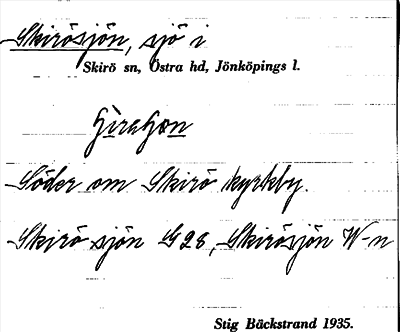 Skirösjön, sjö i
Skirö sn, Östra hd, Jönköpings l.
Söder om Skirö kyrkby.
Skirö sjön G28, Skirösjön W-n
Stig Bäckstrand 1935.